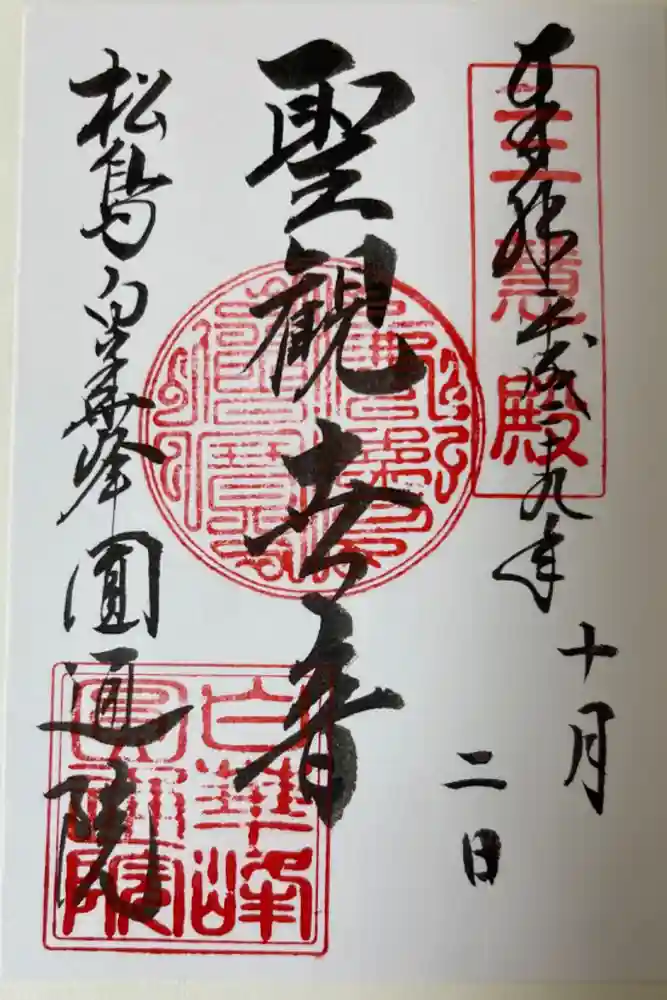 奉拝 平成二十九年
十月
二日
三慧殿
聖観世音
松島白華峰圓通院
白華峰
圓通院